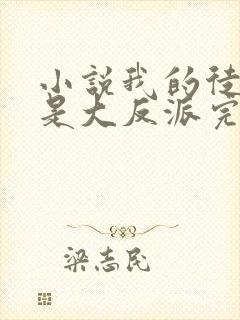 小說我的徒
是大反派完
梁志民